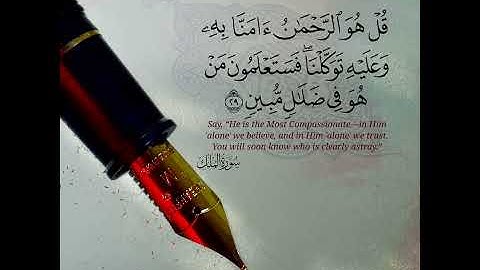 قُلْ هُوَ ٱلرَّحْمَـٰنُ ءَامَنَّا بِهِۦ
وَعَلَيْهِ تَوَكَّلْنَا ۖ فَسَتَعْلَمُونَ مَنْ
هُوَ فِى ضَلَـٰلٍ مُّبِينٍ ٢٩
Say, "He is the Most Compassionate—in Him
'alone' we believe, and in Him 'alone' we trust.
You will soon know who is clearly astray."
سُورَةُ الْمُلْكِ